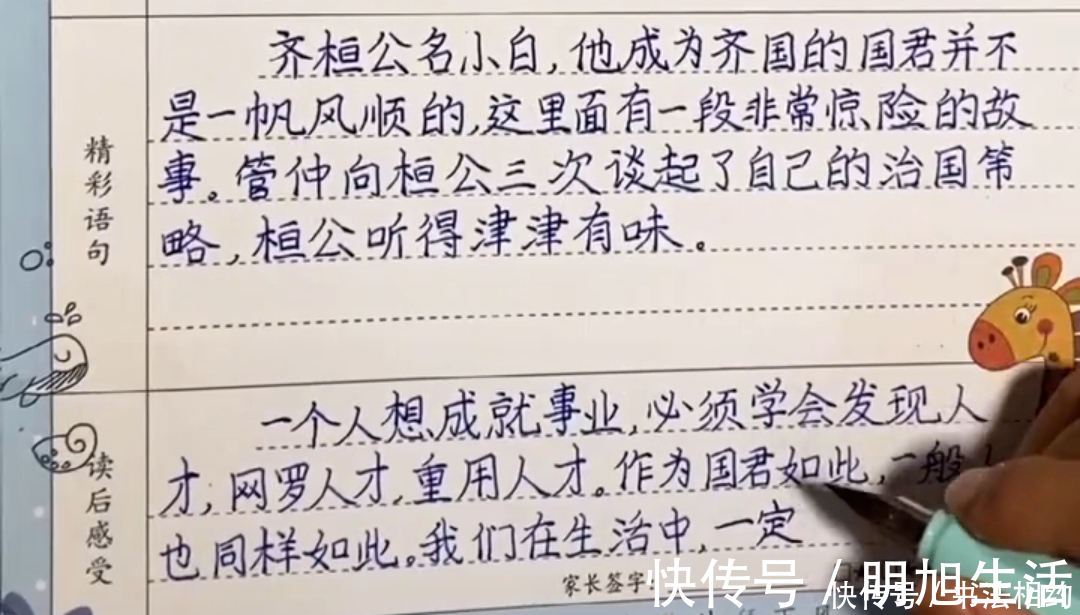 精彩语句
齐桓公名小白,他成为齐国的国君并不
是一帆风顺的,这里面有一段非常惊险的故
事。管仲向桓公三次谈起了自己的治国策
略,桓公听得津津有味。
读后感受
一个人想成就事业,必须学会发现人
才,网罗人才,重用人才。作为国君如此,一般
也同样如此。我们在生活中,一定
家长签字
快传号/明旭生活
快传号/书法相约